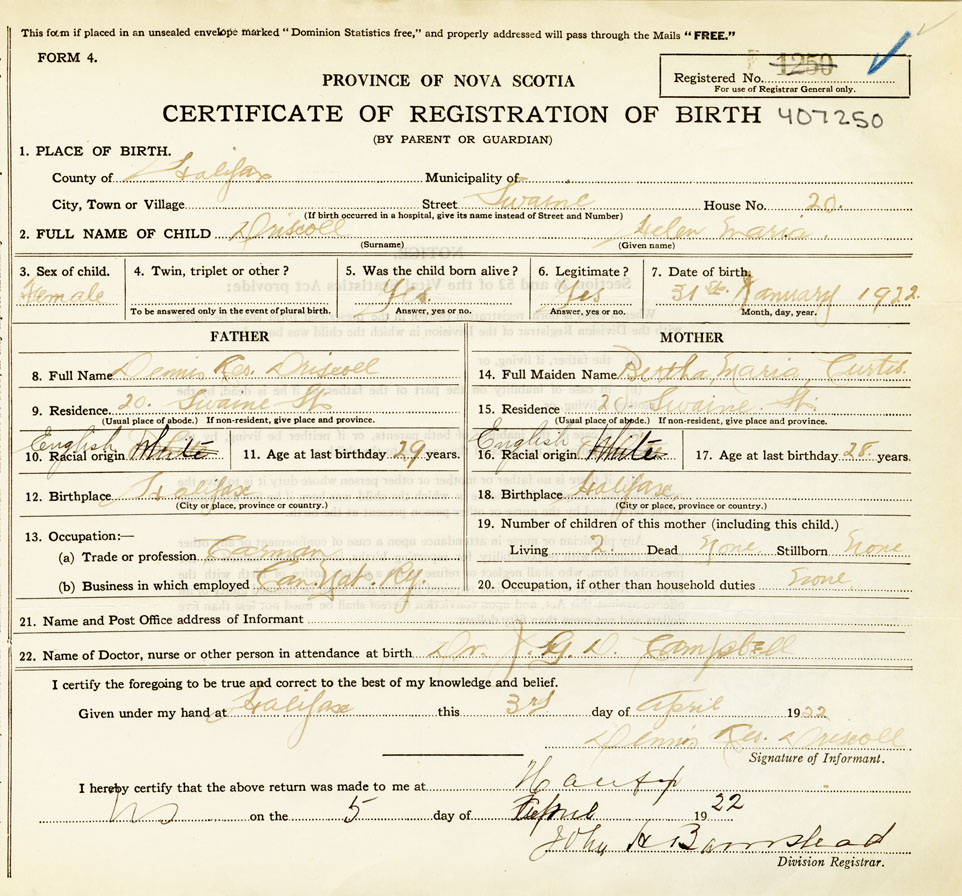 This form if placed in an unsealed envelope marked "Dominion Statistics free," and properly addressed will pass through the Mails "FREE."
FORM 4.
PROVINCE OF NOVA SCOTIA
Registered No. 1250
For use of Registrar General only.
CERTIFICATE OF REGISTRATION OF BIRTH 407250
(BY PARENT OR GUARDIAN)
1. PLACE OF BIRTH.
County of Halifax Municipality of
City, Town or Village Street Swaine House No. 20.
(If birth occurred in a hospital, give its name instead of Street and Number)
2. FULL NAME OF CHILD Driscoll Helen Maria.
(Surname) (Given name)
3. Sex of child. 4. Twin, triplet or other? 5. Was the child born alive? 6. Legitimate? 7. Date of birth.
Female Yes. Yes 31st January 1922.
To be answered only in the event of plural birth. Answer, yes or no. Answer, yes or no. Month, day, year.
FATHER MOTHER
8. Full Name Dennis Driscoll
14. Full Maiden Name Bertha Maria Curtis.
9. Residence. 20. Swaine St.
15. Residence 20 Swaine St.
(Usual place of abode.) If non-resident, give place and province.
(Usual place of abode.) If non-resident, give place and province.
English
10. Racial origin White 11. Age at last birthday 29 years.
English
16. Racial origin White 17. Age at last birthday 28 years.
12. Birthplace Halifax
(City or place, province or country.)
18. Birthplace Halifax.
(City or place, province or country.)
13. Occupation:—
(a) Trade or profession Carman
(b) Business in which employed Can. Nat. Ry.
19. Number of children of this mother (including this child.)
Living 2. Dead None. Stillborn None
20. Occupation, if other than household duties None
21. Name and Post Office address of Informant
22. Name of Doctor, nurse or other person in attendance at birth Dr. J. G. D. Campbell
I certify the foregoing to be true and correct to the best of my knowledge and belief.
Given under my hand at Halifax this 3rd day of April 1922
Dennis Driscoll
Signature of Informant.
I hereby certify that the above return was made to me at Halifax
NS on the 5 day of April 1922
John H Barnstead
Division Registrar.